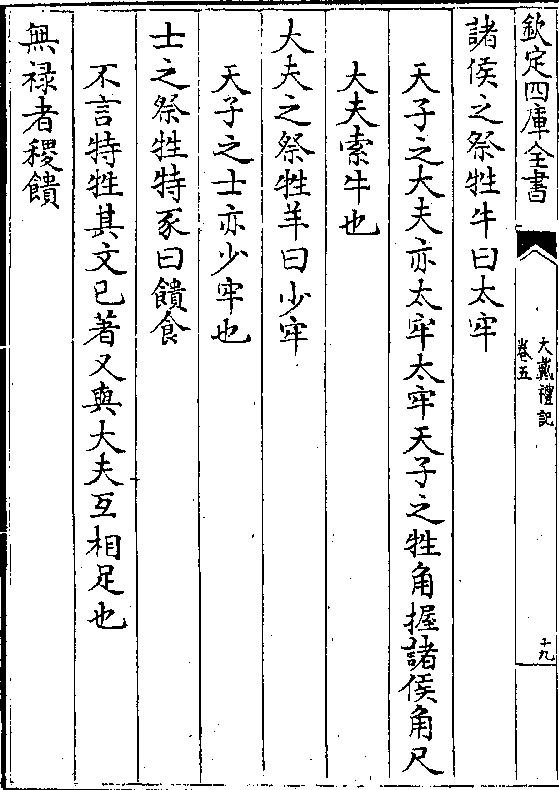 欽定四庫全書
大戴禮記
卷五
十九
諸侯之祭牲牛曰太牢
天子之大夫亦太牢太牢天子之牲角握諸侯角尺
大夫索牛也
大夫之祭牲羊曰少牢
天子之士亦少牢也
士之祭牲特豕曰饋食
不言特牲其文已著又與大夫互相足也
無禄者稷饋